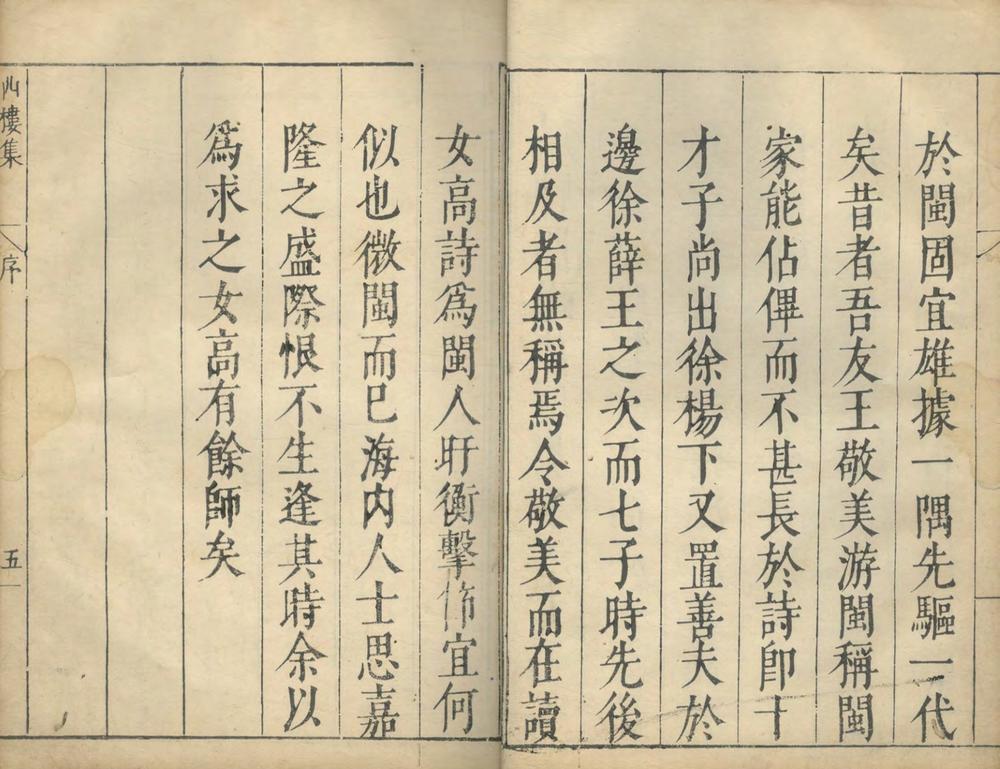 於閩固宜雄據一隅先驅一代
矣昔者吾友王敬美游閩稱閩
家能佔俾而不甚長於詩卽十
才子尚出徐楊下又置善夫於
邊徐薛王之次而七子時先後
相及者無稱焉令敬美而在讀
女高詩爲閩人盱衡擊節宜何
似也微閩而已海內人士思嘉
隆之盛際恨不生逢其時余以
爲求之女高有餘師矣
樓集
序
五